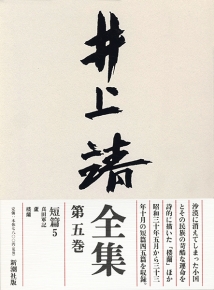 井上靖
全集
第五巻
沙漠に消えてしまった小国
とその民族の苛酷な運命を
詩的に描いた「楼蘭」ほか
昭和三十年五月から三十三
年十月の短篇四五篇を収録。
短篇5
真田軍記
蘆
楼蘭
新潮社版